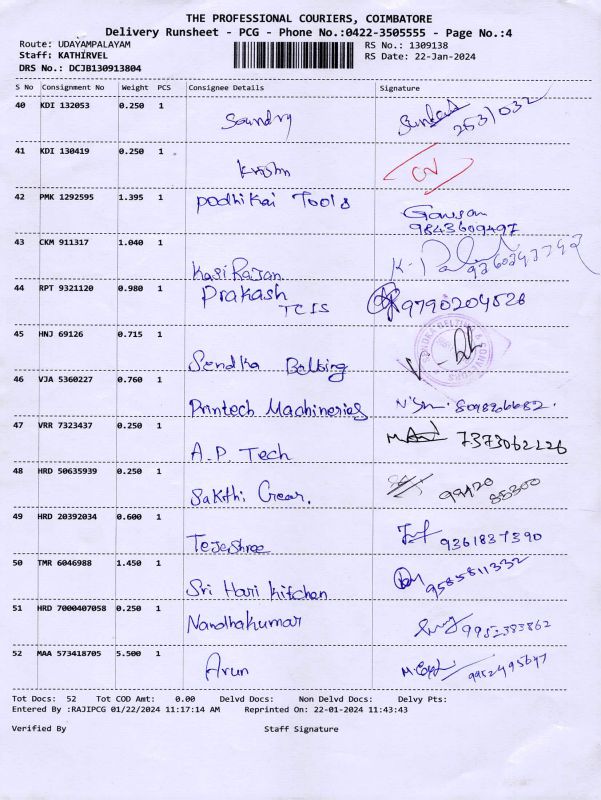 THE PROFESSIONAL COURIERS, COIMBATORE
Delivery Runsheet - PCG - Phone No.:0422-3505555 - Page No.:4
Route: UDAYAMPALAYAM RS No.: 1309138
Staff: KATHIRVEL RS Date: 22-Jan-2024
DRS No.: DCJB130913804
S No Consignment No Weight PCS Consignee Details Signature
40 KDI 132053 0.250 1
Soundry
41 KDI 130419 0.250 1
Krishn
42 PMK 1292595 1.395 1 Podhikai Tools
Gowsan
9843609497
43 CKM 911317 1.040 1
Kasi Rajan
44 RPT 9321120 0.980 1 Prakash 9790204526
45 HNJ 69126 0.715 1
Sendka Belting
46 VJA 5360227 0.760 1
Printech Machineries
47 VRR 7323437 0.250 1
A.P. Tech 7373062226
48 HRD 50635939 0.250 1
Sakthi Gear. 99420
85300
49 HRD 20392034 0.600 1
Tejashree 9361837390
50 TMR 6046988 1.450 1
Sri Hari kitchen 9585811332
51 HRD 7000407058 0.250 1 Nandhakumar
9952383862
52 MAA 573418705 5.500 1 Arun
Tot Docs: 52 Tot COD Amt: 0.00 Delvd Docs: Non Delvd Docs: Delvy Pts:
Entered By :RAJIPCG 01/22/2024 11:17:14 AM Reprinted On: 22-01-2024 11:43:43
Verified By Staff Signature